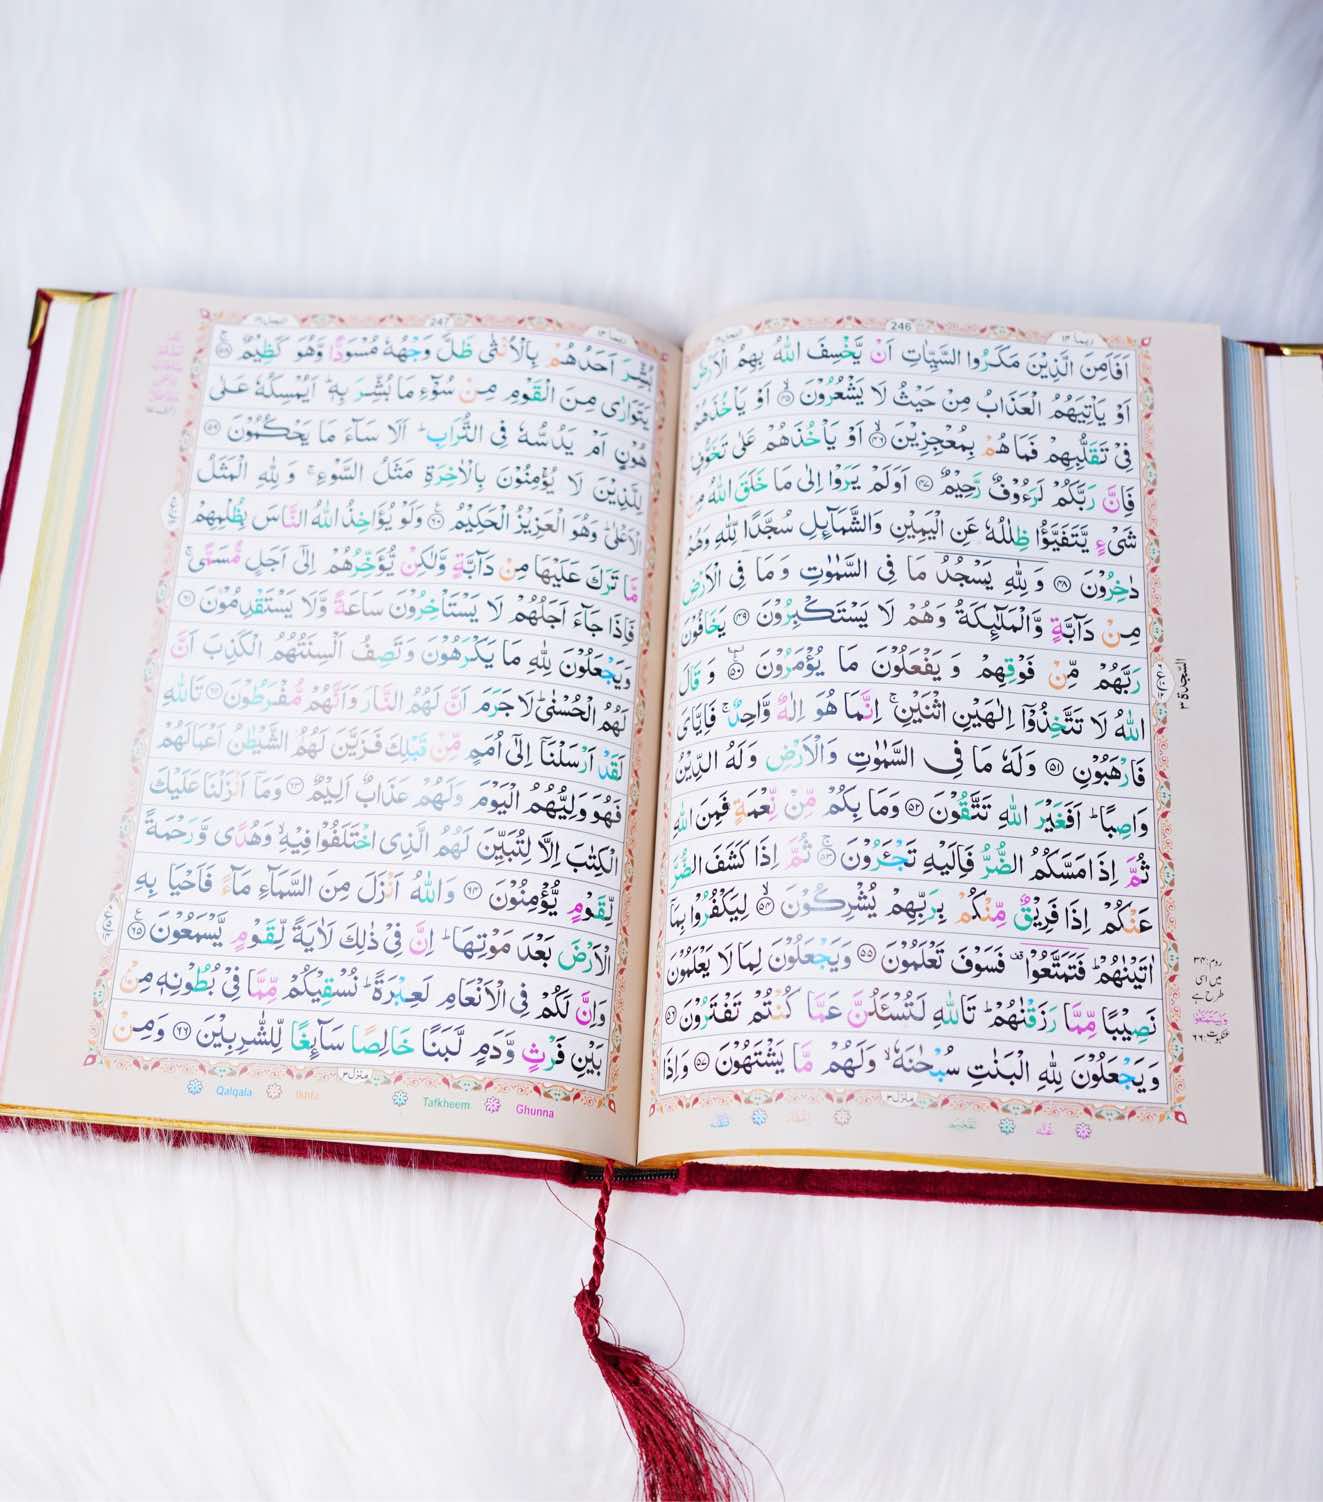 246
اَفَاَمِنَ الَّذِيْنَ مَكَرُوا السَّيِّاٰتِ اَنْ يَّخْسِفَ اللّٰهُ بِهِمُ الْاَرْضَ
اَوْ يَاْتِيَهُمُ الْعَذَابُ مِنْ حَيْثُ لَا يَشْعُرُوْنَ ۙ﴿۴۵﴾ اَوْ يَاْخُذَهُمْ
فِيْ تَقَلُّبِهِمْ فَمَا هُمْ بِمُعْجِزِيْنَ ۙ﴿۴۶﴾ اَوْ يَاْخُذَهُمْ عَلٰى تَخَوُّفٍ
فَاِنَّ رَبَّكُمْ لَرَءُوْفٌ رَّحِيْمٌ ﴿۴۷﴾ اَوَلَمْ يَرَوْا اِلٰى مَا خَلَقَ اللّٰهُ مِنْ
شَيْءٍ يَّتَفَيَّؤُا ظِلٰلُهٗ عَنِ الْيَمِيْنِ وَالشَّمَآئِلِ سُجَّدًا لِّلّٰهِ وَهُمْ
دٰخِرُوْنَ ﴿۴۸﴾ وَلِلّٰهِ يَسْجُدُ مَا فِي السَّمٰوٰتِ وَمَا فِي الْاَرْضِ
مِنْ دَآبَّةٍ وَّالْمَلٰٓئِكَةُ وَهُمْ لَا يَسْتَكْبِرُوْنَ ﴿۴۹﴾ يَخَافُوْنَ
رَبَّهُمْ مِّنْ فَوْقِهِمْ وَيَفْعَلُوْنَ مَا يُؤْمَرُوْنَ ﴿۵۰﴾ وَقَالَ
اللّٰهُ لَا تَتَّخِذُوْٓا اِلٰهَيْنِ اثْنَيْنِ ۚ اِنَّمَا هُوَ اِلٰهٌ وَّاحِدٌ ۚ فَاِيَّايَ
فَارْهَبُوْنِ ﴿۵۱﴾ وَلَهٗ مَا فِي السَّمٰوٰتِ وَالْاَرْضِ وَلَهُ الدِّيْنُ
وَاصِبًا ؕ اَفَغَيْرَ اللّٰهِ تَتَّقُوْنَ ﴿۵۲﴾ وَمَا بِكُمْ مِّنْ نِّعْمَةٍ فَمِنَ اللّٰهِ
ثُمَّ اِذَا مَسَّكُمُ الضُّرُّ فَاِلَيْهِ تَجْـَٔرُوْنَ ۚ﴿۵۳﴾ ثُمَّ اِذَا كَشَفَ الضُّرَّ
عَنْكُمْ اِذَا فَرِيْقٌ مِّنْكُمْ بِرَبِّهِمْ يُشْرِكُوْنَ ۙ﴿۵۴﴾ لِيَكْفُرُوْا بِمَآ
اٰتَيْنٰهُمْ ؕ فَتَمَتَّعُوْا ۟ فَسَوْفَ تَعْلَمُوْنَ ﴿۵۵﴾ وَيَجْعَلُوْنَ لِمَا لَا يَعْلَمُوْنَ
نَصِيْبًا مِّمَّا رَزَقْنٰهُمْ ؕ تَاللّٰهِ لَتُسْـَٔلُنَّ عَمَّا كُنْتُمْ تَفْتَرُوْنَ ﴿۵۶﴾
وَيَجْعَلُوْنَ لِلّٰهِ الْبَنٰتِ سُبْحٰنَهٗ ۙ وَلَهُمْ مَّا يَشْتَهُوْنَ ﴿۵۷﴾ وَاِذَا
منزل ۳
السجدة ۳
247
بُشِّرَ اَحَدُهُمْ بِالْاُنْثٰى ظَلَّ وَجْهُهٗ مُسْوَدًّا وَّهُوَ كَظِيْمٌ ۚ﴿۵۸﴾
يَتَوَارٰى مِنَ الْقَوْمِ مِنْ سُوْٓءِ مَا بُشِّرَ بِهٖ ؕ اَيُمْسِكُهٗ عَلٰى
هُوْنٍ اَمْ يَدُسُّهٗ فِي التُّرَابِ ؕ اَلَا سَآءَ مَا يَحْكُمُوْنَ ﴿۵۹﴾
لِلَّذِيْنَ لَا يُؤْمِنُوْنَ بِالْاٰخِرَةِ مَثَلُ السَّوْءِ ۚ وَلِلّٰهِ الْمَثَلُ
الْاَعْلٰى ؕ وَهُوَ الْعَزِيْزُ الْحَكِيْمُ ﴿۶۰﴾ وَلَوْ يُؤَاخِذُ اللّٰهُ النَّاسَ بِظُلْمِهِمْ
مَّا تَرَكَ عَلَيْهَا مِنْ دَآبَّةٍ وَّلٰكِنْ يُّؤَخِّرُهُمْ اِلٰٓى اَجَلٍ مُّسَمًّى ۚ
فَاِذَا جَآءَ اَجَلُهُمْ لَا يَسْتَاْخِرُوْنَ سَاعَةً وَّلَا يَسْتَقْدِمُوْنَ ﴿۶۱﴾
وَيَجْعَلُوْنَ لِلّٰهِ مَا يَكْرَهُوْنَ وَتَصِفُ اَلْسِنَتُهُمُ الْكَذِبَ اَنَّ
لَهُمُ الْحُسْنٰى ؕ لَا جَرَمَ اَنَّ لَهُمُ النَّارَ وَاَنَّهُمْ مُّفْرَطُوْنَ ﴿۶۲﴾ تَاللّٰهِ
لَقَدْ اَرْسَلْنَآ اِلٰٓى اُمَمٍ مِّنْ قَبْلِكَ فَزَيَّنَ لَهُمُ الشَّيْطٰنُ اَعْمَالَهُمْ
فَهُوَ وَلِيُّهُمُ الْيَوْمَ وَلَهُمْ عَذَابٌ اَلِيْمٌ ﴿۶۳﴾ وَمَآ اَنْزَلْنَا عَلَيْكَ
الْكِتٰبَ اِلَّا لِتُبَيِّنَ لَهُمُ الَّذِي اخْتَلَفُوْا فِيْهِ ۙ وَهُدًى وَّرَحْمَةً
لِّقَوْمٍ يُّؤْمِنُوْنَ ﴿۶۴﴾ وَاللّٰهُ اَنْزَلَ مِنَ السَّمَآءِ مَآءً فَاَحْيَا بِهِ
الْاَرْضَ بَعْدَ مَوْتِهَا ؕ اِنَّ فِيْ ذٰلِكَ لَاٰيَةً لِّقَوْمٍ يَّسْمَعُوْنَ ﴿۶۵﴾
وَاِنَّ لَكُمْ فِي الْاَنْعَامِ لَعِبْرَةً ؕ نُسْقِيْكُمْ مِّمَّا فِيْ بُطُوْنِهٖ مِنْ
بَيْنِ فَرْثٍ وَّدَمٍ لَّبَنًا خَالِصًا سَآئِغًا لِّلشّٰرِبِيْنَ ﴿۶۶﴾ وَمِنْ
منزل ۳
Qalqala Ikhfa Tafkheem Ghunna